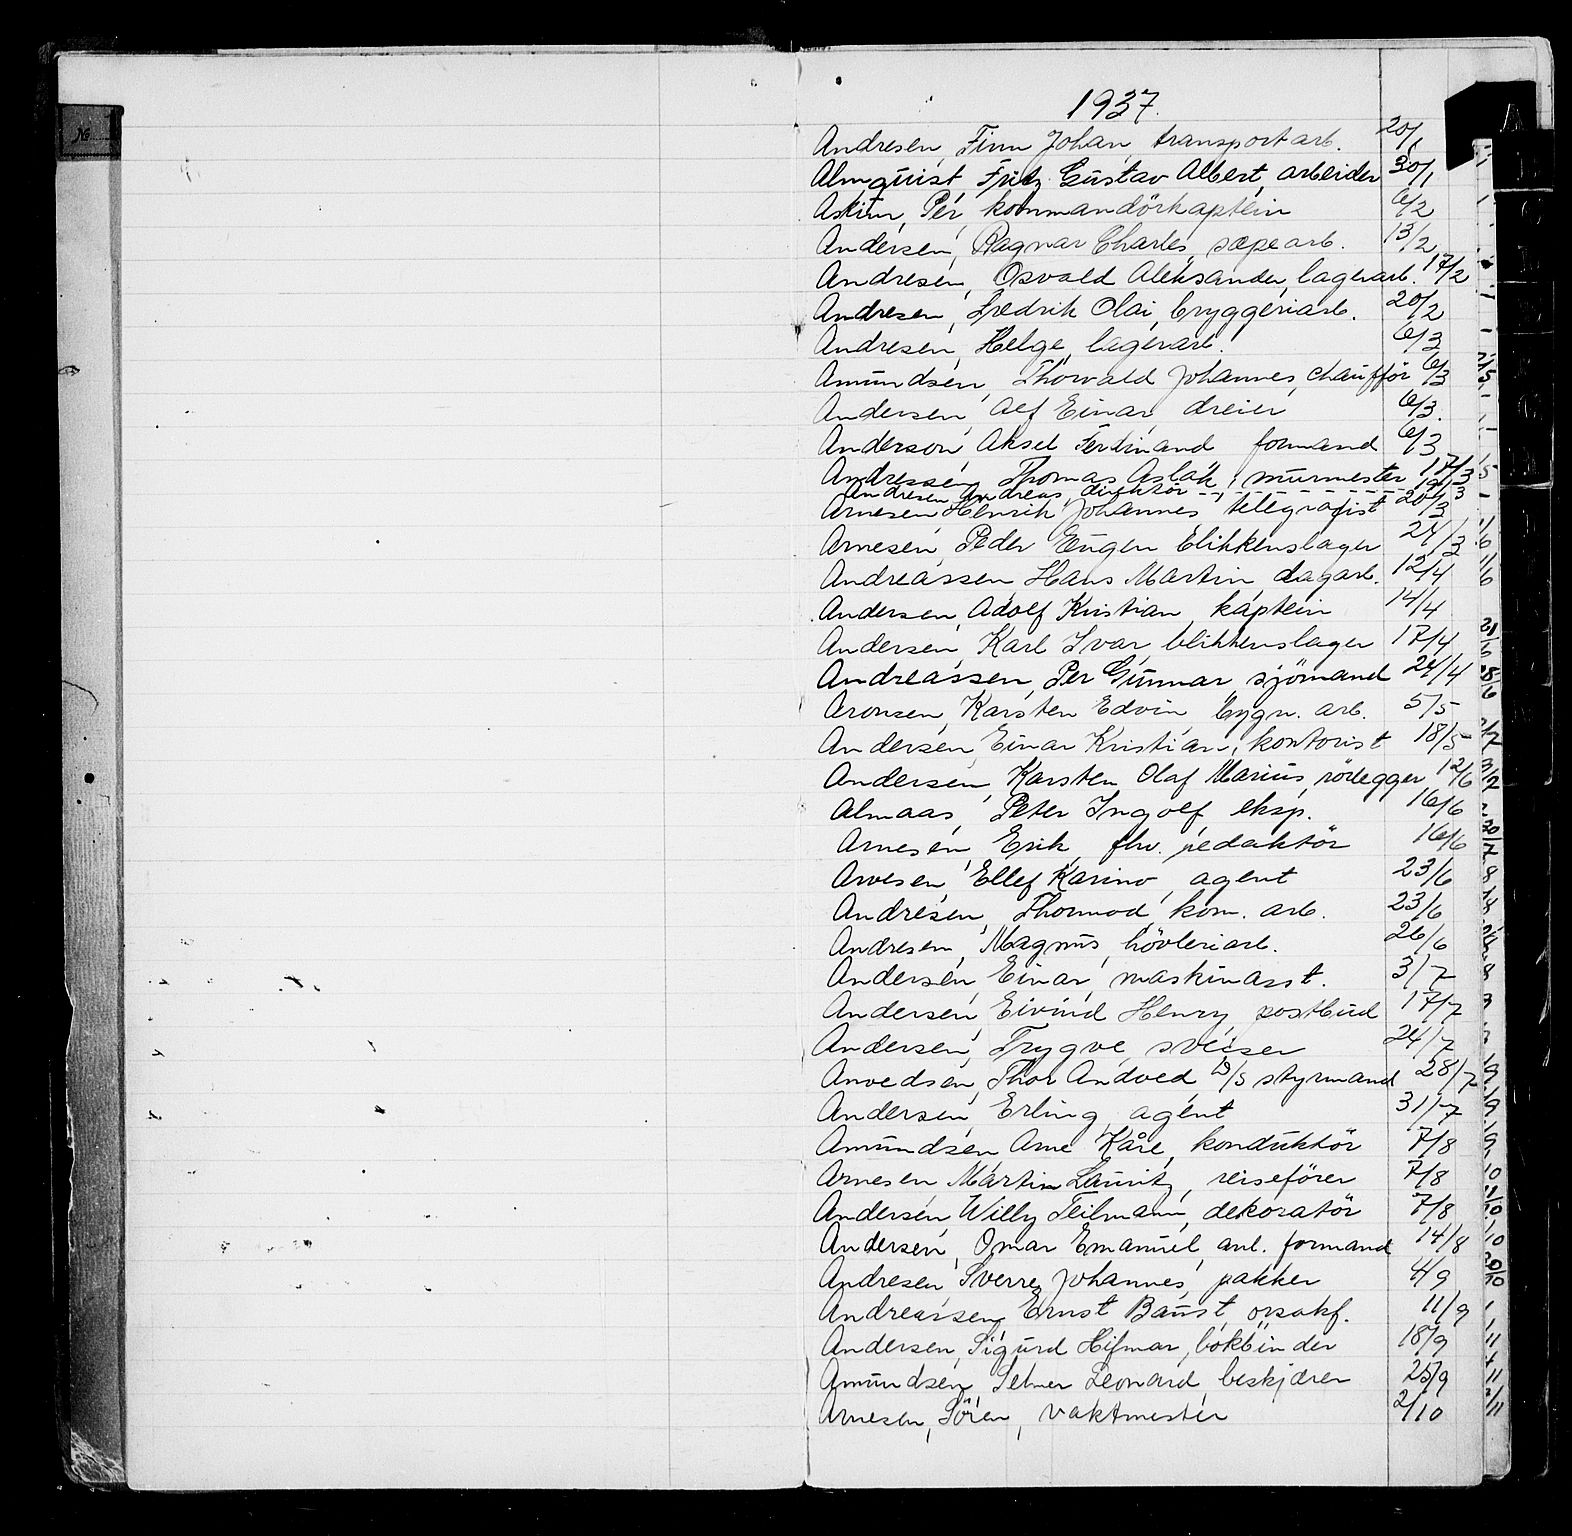 1937.
Andresen, Finn Johan, transportarb. 20/1
Almquist, Fritz Gustav Albert, arbeider 30/1
Askim, Per, kommandörkaptein 6/2
Andersen, Ragnar Charles, sæpearb. 13/2
Andresen, Osvald Aleksander, lagerarb. 17/2
Andresen, Fredrik Olai, bryggeriarb. 20/2
Andresen, Helge, lagerarb. 6/3
Amundsen, Thorvald Johannes, chauffør 6/3
Andersen, Alf Einar, dreier 6/3.
Anderson, Aksel Ferdinand formand 6/3
Andressen, Thomas Aslak, murmester 17/3
Andresen, Andreas, direktör
Arnesen Henrik Johannes telegrafist 20/3
Arnesen, Peder Eugen blikkenslager 24/3
Andreassen, Hans Martin, dagarb. 12/4
Andersen, Adolf Kristian, kaptein 14/4
Andersen, Karl Ivar, blikkenslager 17/4
Andreassen, Per Gunnar sjömand 24/4
Aronsen, Karsten Edvin, bygn. arb. 5/5
Andersen, Einar Kristian, kontorist 18/5
Andersen, Karsten Olaf Marius, rörlegger 12/6
Almaas, Peter Ingolf, eksp. 16/6
Arnesen, Erik, fhv. redaktör 16/6
Arvesen, Ellef Karino, agent 23/6
Andresen, Thormod, kom. arb. 23/6
Andresen, Magnus, hövleriarb. 26/6
Andersen, Einar, maskinasst. 3/7
Andersen, Eivind Henry, postbud 17/7
Andersen, Trygve, sveiser 24/7
Anvedsen, Thor Andved, D/S styrmand 28/7
Andersen, Erling, agent 31/7
Amundsen, Arne Kåre, konduktör 7/8
Arnesen Martin Lauritz, reiseförer 7/8
Andersen, Willy Teilmann, dekoratör 7/8
Andersen, Omar Emanuel, anl. formand 14/8
Andresen, Sverre Johannes, pakker 4/9
Andreassen, Ernst Baust, orsokf. 11/9
Andersen, Sigurd Hifmar, bokbinder 18/9
Amundsen, Selmer Leonard, beskjærer 25/9
Arnesen, Sören, vaktmester 2/10